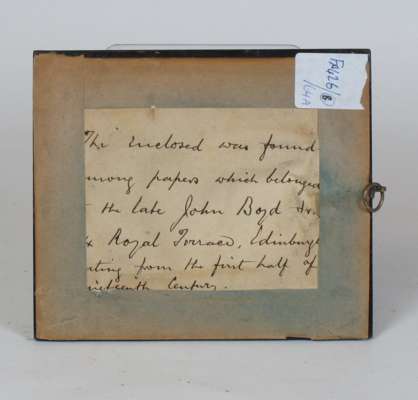 FA426/
8
/LHA
The enclosed was found
among papers which belonged
the late John Boyd
Royal Terrace, Edinburgh
dating from the first half of
nineteenth Century.